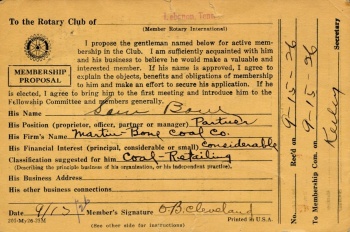 Lebanon, Tenn.
To the Rotary Club of
(Member Rotary International)
I propose the gentleman named below for active mem-
bership in the Club. I am sufficiently acquainted with him
and his business to believe he would make a valuable and
interested member. If his name is approved, I agree to
explain the objects, benefits and obligations of membership
to him and make an effort to secure his application. If he
MEMBERSHIP
PROPOSAL
is elected, I agree to bring him to the first meeting and introduce him to the
Fellowship Committee and members generally.
His Name Sam Bone
His Position (proprietor, officer, partner or manager) Partner
His Firm's Name Martin-Bone Coal Co.
His Financial Interest (principal, considerable or small) Considerable
Classification suggested for him Coal-Retailing
(Describing the principle business of his organization, or his independent practice).
His Business Address
His other business connections
Date 9/15 Member's Signature O.B. Cleveland
Printed in U.S.A.
(See other side for instructions)
No.
Rec'd on 9-15-26
To Membership Com. on 9-15-26
Kelley
Secretary